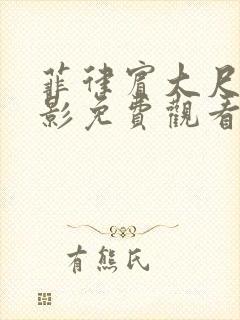 菲律賓大尺
影免費觀看
有熊氏